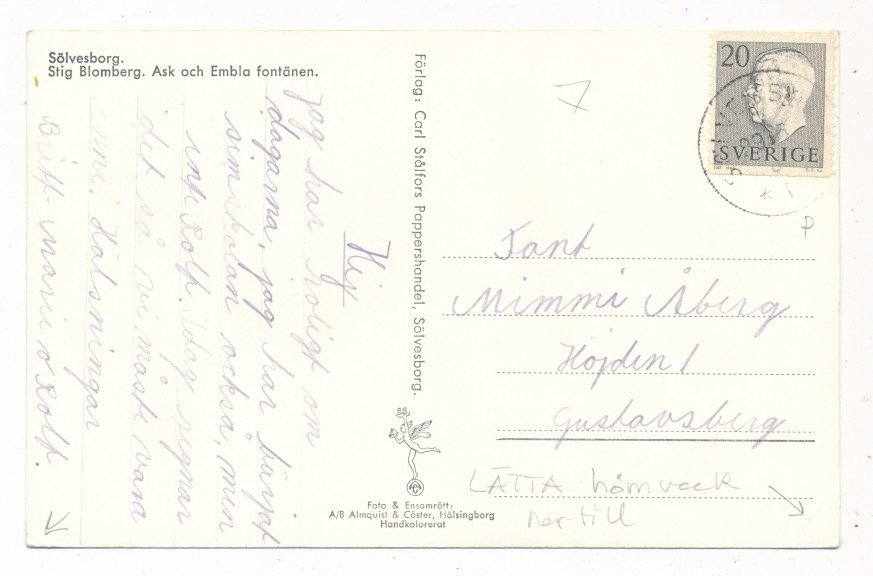 Sölvesborg.
Stig Blomberg. Ask och Embla fontänen.
Hej
Jag har roligt om
dagarna, jag har börjat
simskolan också, men
inte Rolf. Idag regnar
det så vi måste vara
inne. Hälsningar
Britt-Marie o Rolf.
Förlag: Carl Stålfors Pappershandel, Sölvesborg.
Foto & Ensamrätt:
A/B Almquist & Cöster, Hälsingborg
Handkolorerat
7
20
SVERIGE
P
Tant
Mimmi Åberg
Höjden 1
Gustavsberg
LÄTTA hörnveck
ner till